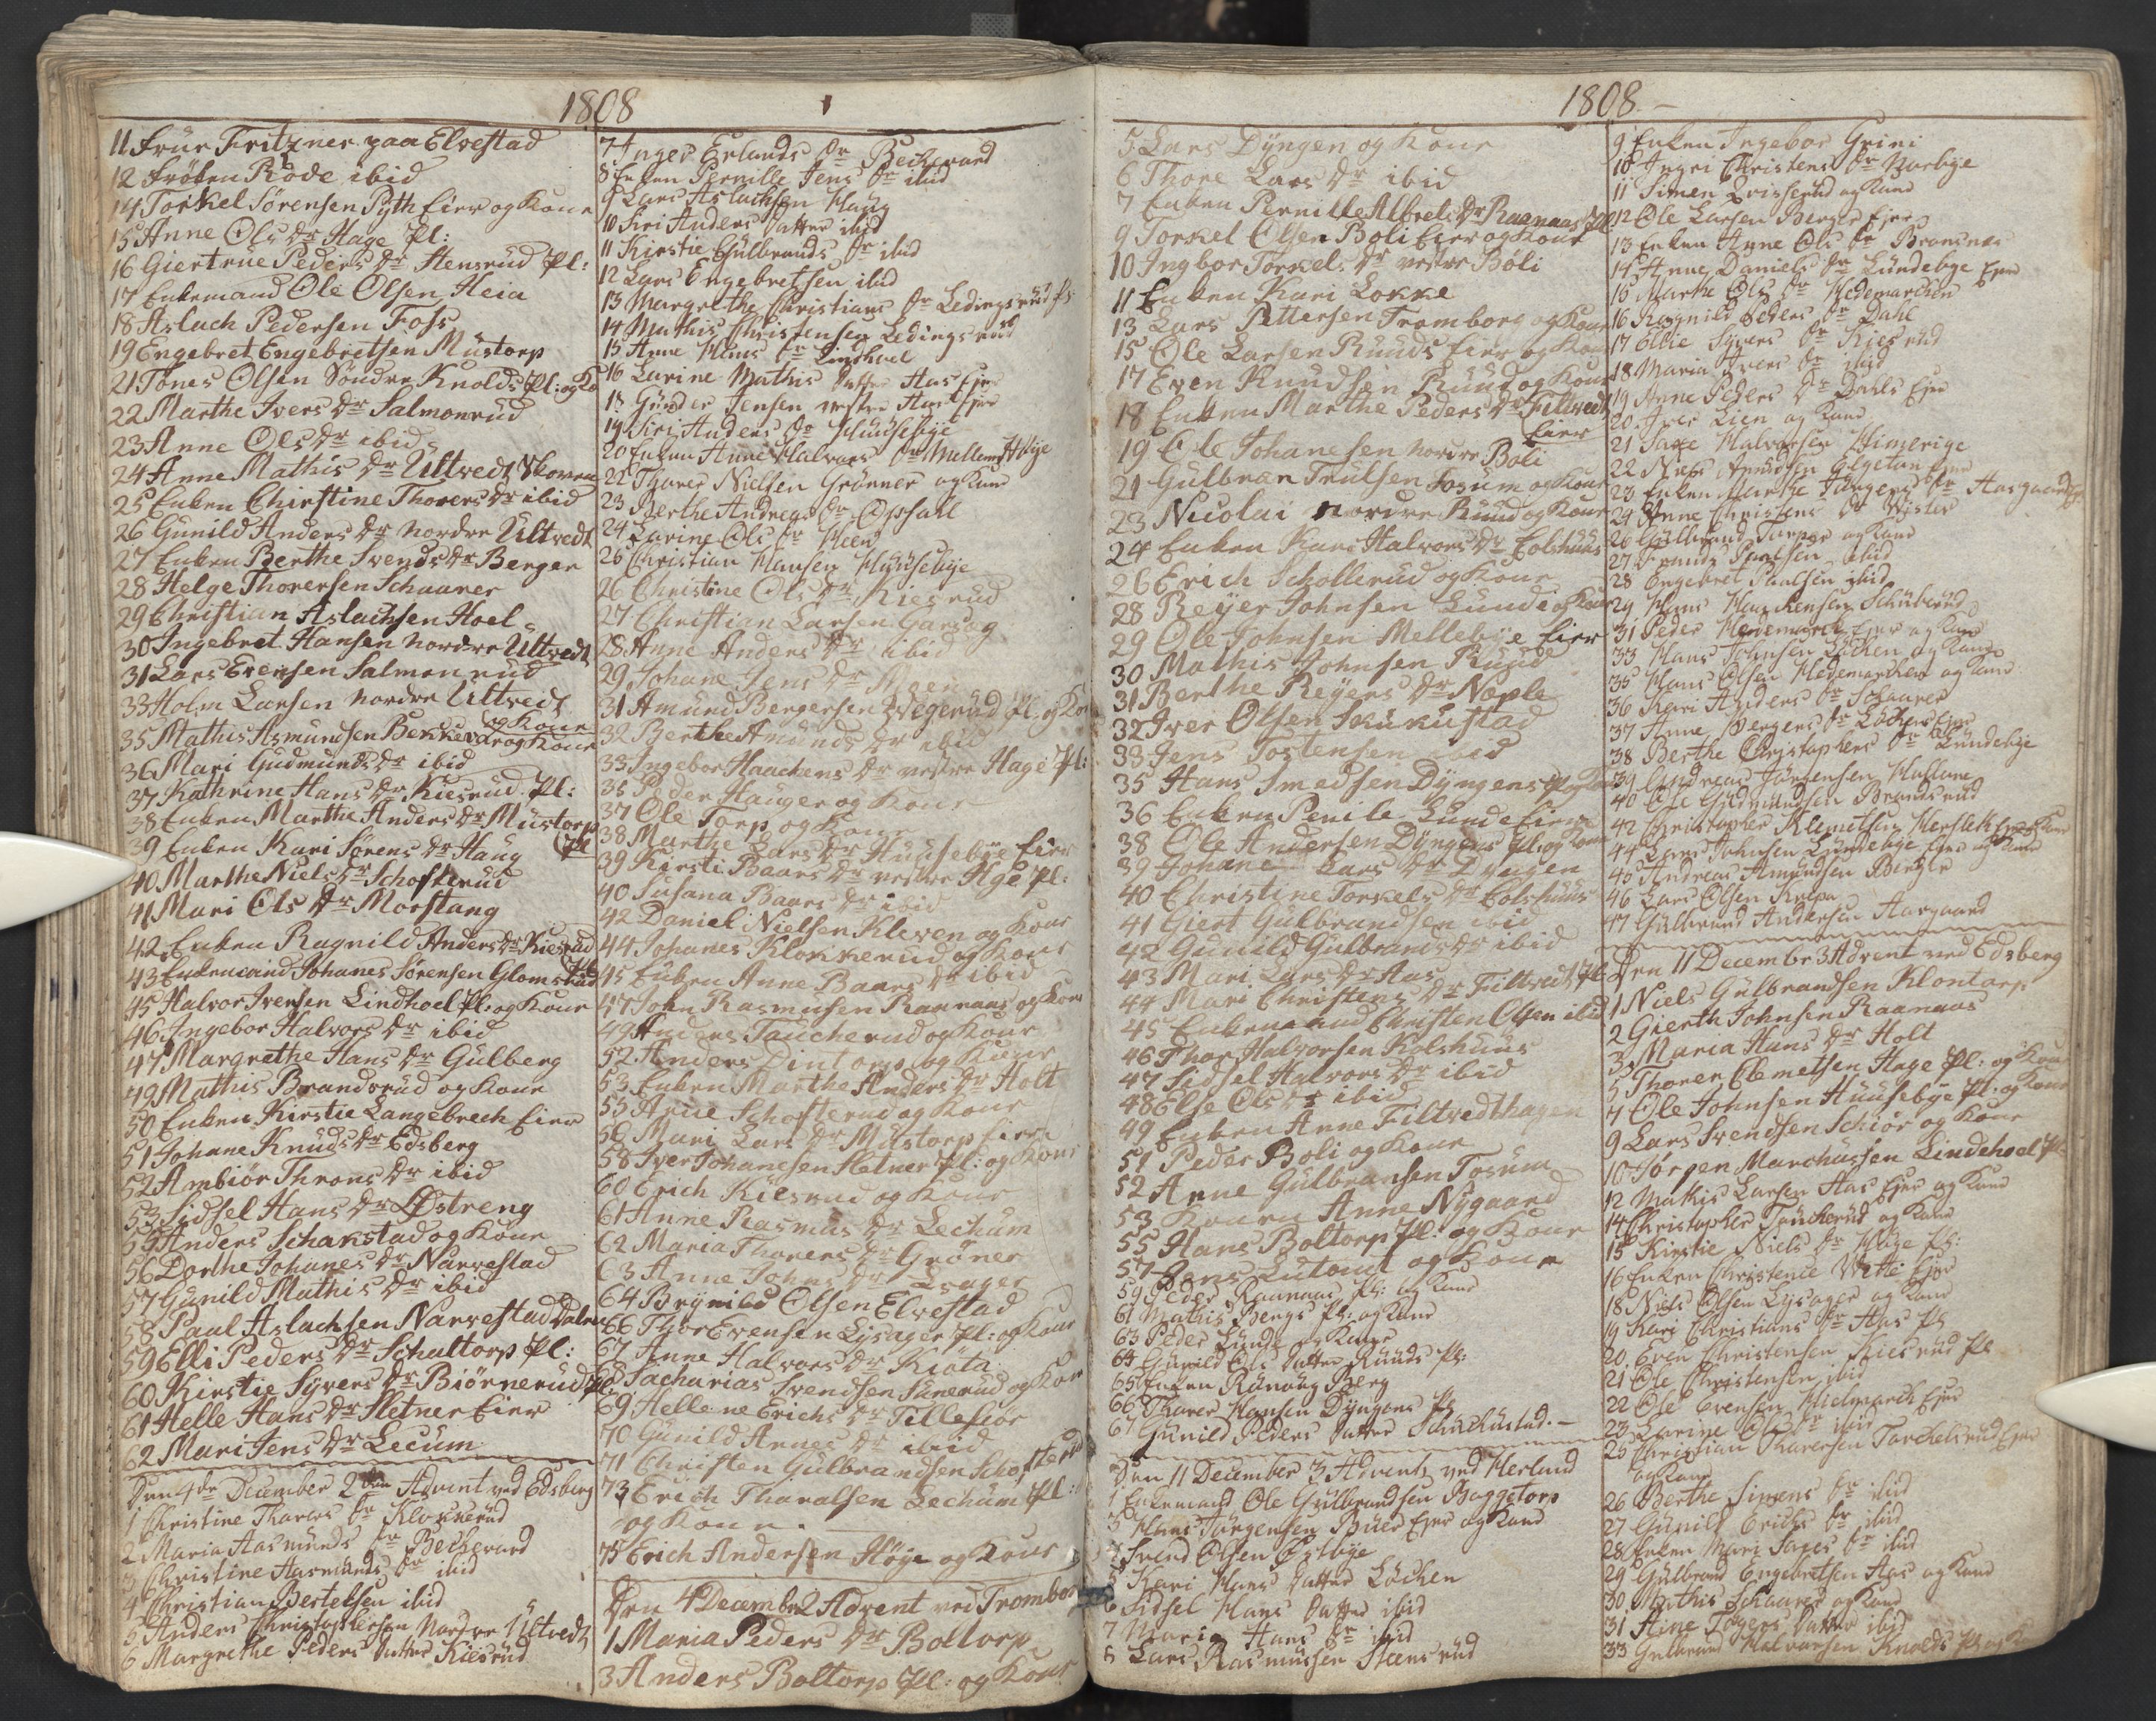 1808
11 Frue Fritzner paa Elvestad
12 Frøken Rode ibid
14 Torkel Sørensen Pyth Eier og Kone
15 Anne Ols Dr Hage Pl:
16 Giertrue Peders Dr Stensrud Pl:
17 Enkemand Ole Olsen Heia
18 Aslach Pedersen Foss
19 Engebret Engebretsen Mustorp
21 Tønes Olsen Søndre Knolds Pl: og Ko
22 Marthe Ivers Dr Salmonrud
23 Anne Ols Dr ibid
24 Anne Mathis Dr Ultvedt Skoven
25 Enken Chirstine Thorers Dr ibid
26 Gunild Anders Dr nordre Ultvedt
27 Enken Berthe Svends Dr Berger
28 Helge Thorersen Schaarer
29 Christian Aslachsen Hoel
30 Ingebret Hansen nordre Ultvedt
31 Lars Evensen Salmonrud
33 Holm Larsen nordre Ultvedt
og Kone
35 Mathis Asmundsen Bekkevar og Kone
36 Mari Gudmunds Dr ibid
37 Kathrine Hans Dr Kiesrud Pl:
38 Enken Marthe Anders Dr Mustorp
Pl
39 Enken Kari Sørens Dr Haug
40 Marthe Niels Dr Schofterud
41 Mari Ols Dr Morstang
42 Enken Ragnild Anders Dr Kiesrud
43 Enkemand Johanes Sørensen Glomsrud
45 Halvor Ivensen Lindhoel Pl: og Kone
46 Ingebor Halvors Dr ibid
47 Margrethe Hans Dr Gulberg
49 Mathis Brandsrud og Kone
50 Enken Kirstie Langebrech Eier
51 Johane Knuds Dr Edsberg
52 Ambiør Throns Dr ibid
53 Sidsel Hans Dr Østreng
55 Anders Schakstad og Kone
56 Dorthe Johanes Dr Narvestad
57 Gunild Mathis Dr ibid
58 Paul Aslachsen Narvestad Dalen
59 Elli Peders Dr Schultorp Pl:
60 Kirstie Syvers Dr Biørnerud Pl
61 Helle Hans Dr Sletner Eier
62 Mari Jens Dr Lecum
Den 4de December 2den Advent ved Edsberg
1 Christine Thorers Dr Kloknerud
2 Maria Aasmunds Dr Beckevard
3 Christine Aasmunds Dr ibid
4 Christian Bertelsen ibid
5 Anders Christophersen Nordre Ultvedt
6 Margrethe Peders Datter Kiesrud
7 Inger Erlands Dr Beckevard
8 Enken Pernille Jens Dr ibid
9 Lars Aslachsen Haug
10 Siri Anders Datter ibid
11 Kirstie Gulbrands Dr ibid
12 Lars Engebretsen ibid
13 Margrethe Christians Dr Ledingsrud Pl
14 Mathis Christensen Ledingsrud
15 Anne Hans Dr Lindhoel
16 Larine Mathis Datter Aas Ejer
18 Gunder Jensen vestre Ejer
19 Siri Anders Dr Huusebye
20 Enken Anne Halvors Dr Mellem
22 Thorer Nielsen Grønner og Kone
23 Berthe Andreas Dr Opsahl
24 Larine Ols Dr Heen
25 Christian Hansen Huusebye
26 Christine Ols Dr Kiesrud
27 Christian Larsen Garseg
28 Anne Anders Dr ibid
29 Johane Jens Dr
31 Amund Bergersen Wegerud Pl: og Kone
32 Berthe Amunds Dr ibid
33 Ingebor Haachens Dr vestre Hage Pl:
35 Peder Hauger og Kone
37 Ole Torp og Kone
38 Marthe Lars Dr Huusebye Eier
39 Kirsti Baars Dr vestre Hage Pl:
40 Susana Baars Dr ibid
42 Daniel Nielsen Kleven og Kone
44 Johanes Klokkerud og Kone
45 Enken Anne Baars Dr ibid
47 John Rasmusen Raanaas og Kone
49 Andres Taucherud og Kone
52 Anders Lintorp og Kone
53 Enken Marthe Anders Dr Holt
55 Arne Schofterud og Kone
56 Mari Lars Dr Mustorp Eier
58 Iver Johanesen Sletner Pl: og Kone
60 Erich Kiesrud og Kone
61 Anne Rasmus Dr Lechum
62 Maria Thorers Dr Grøner
63 Anne Johns Dr
64 Brynild Olsen Elvestad
66 Thor Evensen Lysager Pl: og Kone
67 Anne Halvors Dr Kiøta
68 Sacharias Svendsen Sunerud og Kone
69 Hellene Erichs Dr Tillesiør
70 Gunild Annes Dr ibid
71 Christen Gulbrandsen Schofterud
73 Erich Tharalsen Lechum Pl:
og Kone.
75 Erich Andersen Høye og Kone
Den 4 Decembr 2 Advent ved Trombor
1 Maria Peders Dr Boltorp
3 Anders Boltorp Pl: og Kone
1808
5 Lars Dyngen og Kone
6 Thore Lars Dr ibid
7 Enken Pernille Albrets Dr Raanaas Pl
9 Torkel Olsen Boli Eier og Kone
10 Ingbor Torkels Dr vestre Boli
11 Enken Kari Løkke
13 Lars Pettersen Tromborg og Kone
15 Ole Larsen Ruuds Eier og Kone
17 Even Knudsen Ruud og Kone
18 Enken Marthe Peders Dr Filtvedt
Eier
19 Ole Johanesen nordre Boli
21 Gulbran Trulsen Tosum og Kone
23 Nicolai nordre Ruud og Kone
24 Enken Kari Halvors Dr Colshuus
26 Erich Schollerud og Kone
28 Reyer Johnsen Lunde og Kone
29 Ole Johnsen Mellebye Eier
30 Mathis Johnsen Ruud
31 Berthe Reyers Dr Næple
32 Iver Olsen Skukustad
33 Jens Tostensen ibid
35 Hans Smedsen Dyngens Pl og
36 Enken Penile Lunde Eier
38 Ole Andersen Dyngens Pl: og Kone
39 Johane Lars Dr Dyngen
40 Christine Torkels Dr Colshuus
41 Giert Gulbrandsen ibid
42 Gunild Gulbrands Dr ibid
43 Mari Lars Dr Aas
44 Mari Christens Dr Filtvedt Pl
45 Enkemand Christen Olsen ibid
46 Thor Halvorsen Kolshuus
47 Sidsel Halvors Dr ibid
48 Else Ols Dr ibid
49 Enken Anne Filtvedthagen
51 Peder Boli og Kone
52 Arne Gulbransen Tosum
53 Konen Anne Nygaard
55 Hans Boltorp Pl: og Kone
57 Jens Lutomt og Kone
59 Peder Raanaas Pl: og Kone
61 Mathis Bergs Pl: og Kone
63 Peder Lunde og Kone
64 Gunild Ols Datter Ruuds Pl:
65 Enken Rønnug Berg
66 Thorer Hansen Dyngens Pl
67 Gunild Peders Datter Schuchustad. —
Den 11 December 3 Advent ved Herland
1 Enkemand Ole Gulbrandsen Baggetorp
3 Hans Jørgensen Buer Ejer og Kone
4 Svend Olsen Østbye
5 Kari Hans Datter Løchen
6 Sidsel Hans Datter ibid
7 Maria Hans Dr ibid
8 Lars Rasmussen Steensrud
9 Enken Ingebor Grini
10 Ingri Christens Dr Norbye
11 Simen Qvisserud og Kone
12 Ole Larsen Berger Ejer
13 Enken Anne Ols Dr Bronsnæs
14 Anne Daniels Dr Lundebye Ejer
15 Marthe Ols Dr Hedemarchen
16 Ragnild Peders Dr Dahl
17 Ellie Syvers Dr Kiesrud
18 Maria Ivers Dr ibid
19 Anne Peders Dr Dahls Ejer
20 Iver Lien og Kone
21 Saxe Halvorsen Himerige
22 Niels Amundsen Elgetun Ejer
23 Enken Marthe Jørgens Dr Aasgaard
24 Anne Christens Dr Wister
26 Gulbrand Torper og Kone
27 Trond Paulsen ibid
28 Engebret Paulsen ibid
29 Hans Haachensen Schuberud
31 Peder Hedemarch Ejer og Kone
33 Hans Johnsen Løchen og Kone
35 Hans Olsen Hedemarchen og Kone
36 Kari Anders Dr Schaarer
37 Anne Bergers Dr Løchens Ejer
38 Berthe Christophers Dr Lundebye
39 Andreas Jørgensen Hallane
40 Ole Gudmundsen Brandsrud
42 Christopher Klemetsen Hersleth Ejer og Kone
44 Lars Johnsen Lundebye Ejer og Kone
45 Andreas Amundsen Berger
46 Lars Olsen Krepa
47 Gulbrand Andersen Aasgaard
Den 11 Decembr 3 Advent ved Edsberg
1 Niels Gulbrandsen Klontorp
2 Gierth Johnsen Raanaas
3 Maria Hans Dr Holt
5 Thorer Clemetsen Hage Pl: og Kone
7 Ole Johnsen Huusebye Pl: og Kone
9 Lars Svendsen Schiør og Kone
10 Jørgen Marchussen Lindehoel Pl
12 Mathis Larsen Aas Ejer og Kone
14 Christopher Taucherud og Kone
15 Kirstie Niels Dr Hage Pl:
16 Enken Christence Vette Ejer
18 Niels Olsen Lysager og Kone
19 Kari Christians Dr Aas Pl
20 Even Christensen Kiesrud Pl
21 Ole Christensen ibid
22 Ole Evensen Hielmarch Ejer
23 Larine Ols Dr ibid
25 Christian Thorersen Torchelsrud Ejer
og Kone
26 Berthe Simens Dr ibid
27 Gunild Erichs Dr ibid
28 Enken Mari Saxes Dr ibid
29 Gulbrand Engebretsen Aas og Kone
30 Mathis Schaarer og Kone
31 Aine Tøgers Datter ibid
33 Gulbrand Halvorsen Knolds Pl og K